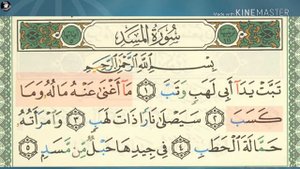 Made with KINEMASTER
سُورَةُ المَسَدِ
بِسْمِ اللَّهِ الرَّحْمَٰنِ الرَّحِيمِ
تَبَّتْ يَدَآ أَبِى لَهَبٍ وَتَبَّ ١ مَآ أَغْنَىٰ عَنْهُ مَالُهُۥ وَمَا
كَسَبَ ٢ سَيَصْلَىٰ نَارًا ذَاتَ لَهَبٍ ٣ وَٱمْرَأَتُهُۥ
حَمَّالَةَ ٱلْحَطَبِ ٤ فِى جِيدِهَا حَبْلٌ مِّن مَّسَدٍۭ ٥